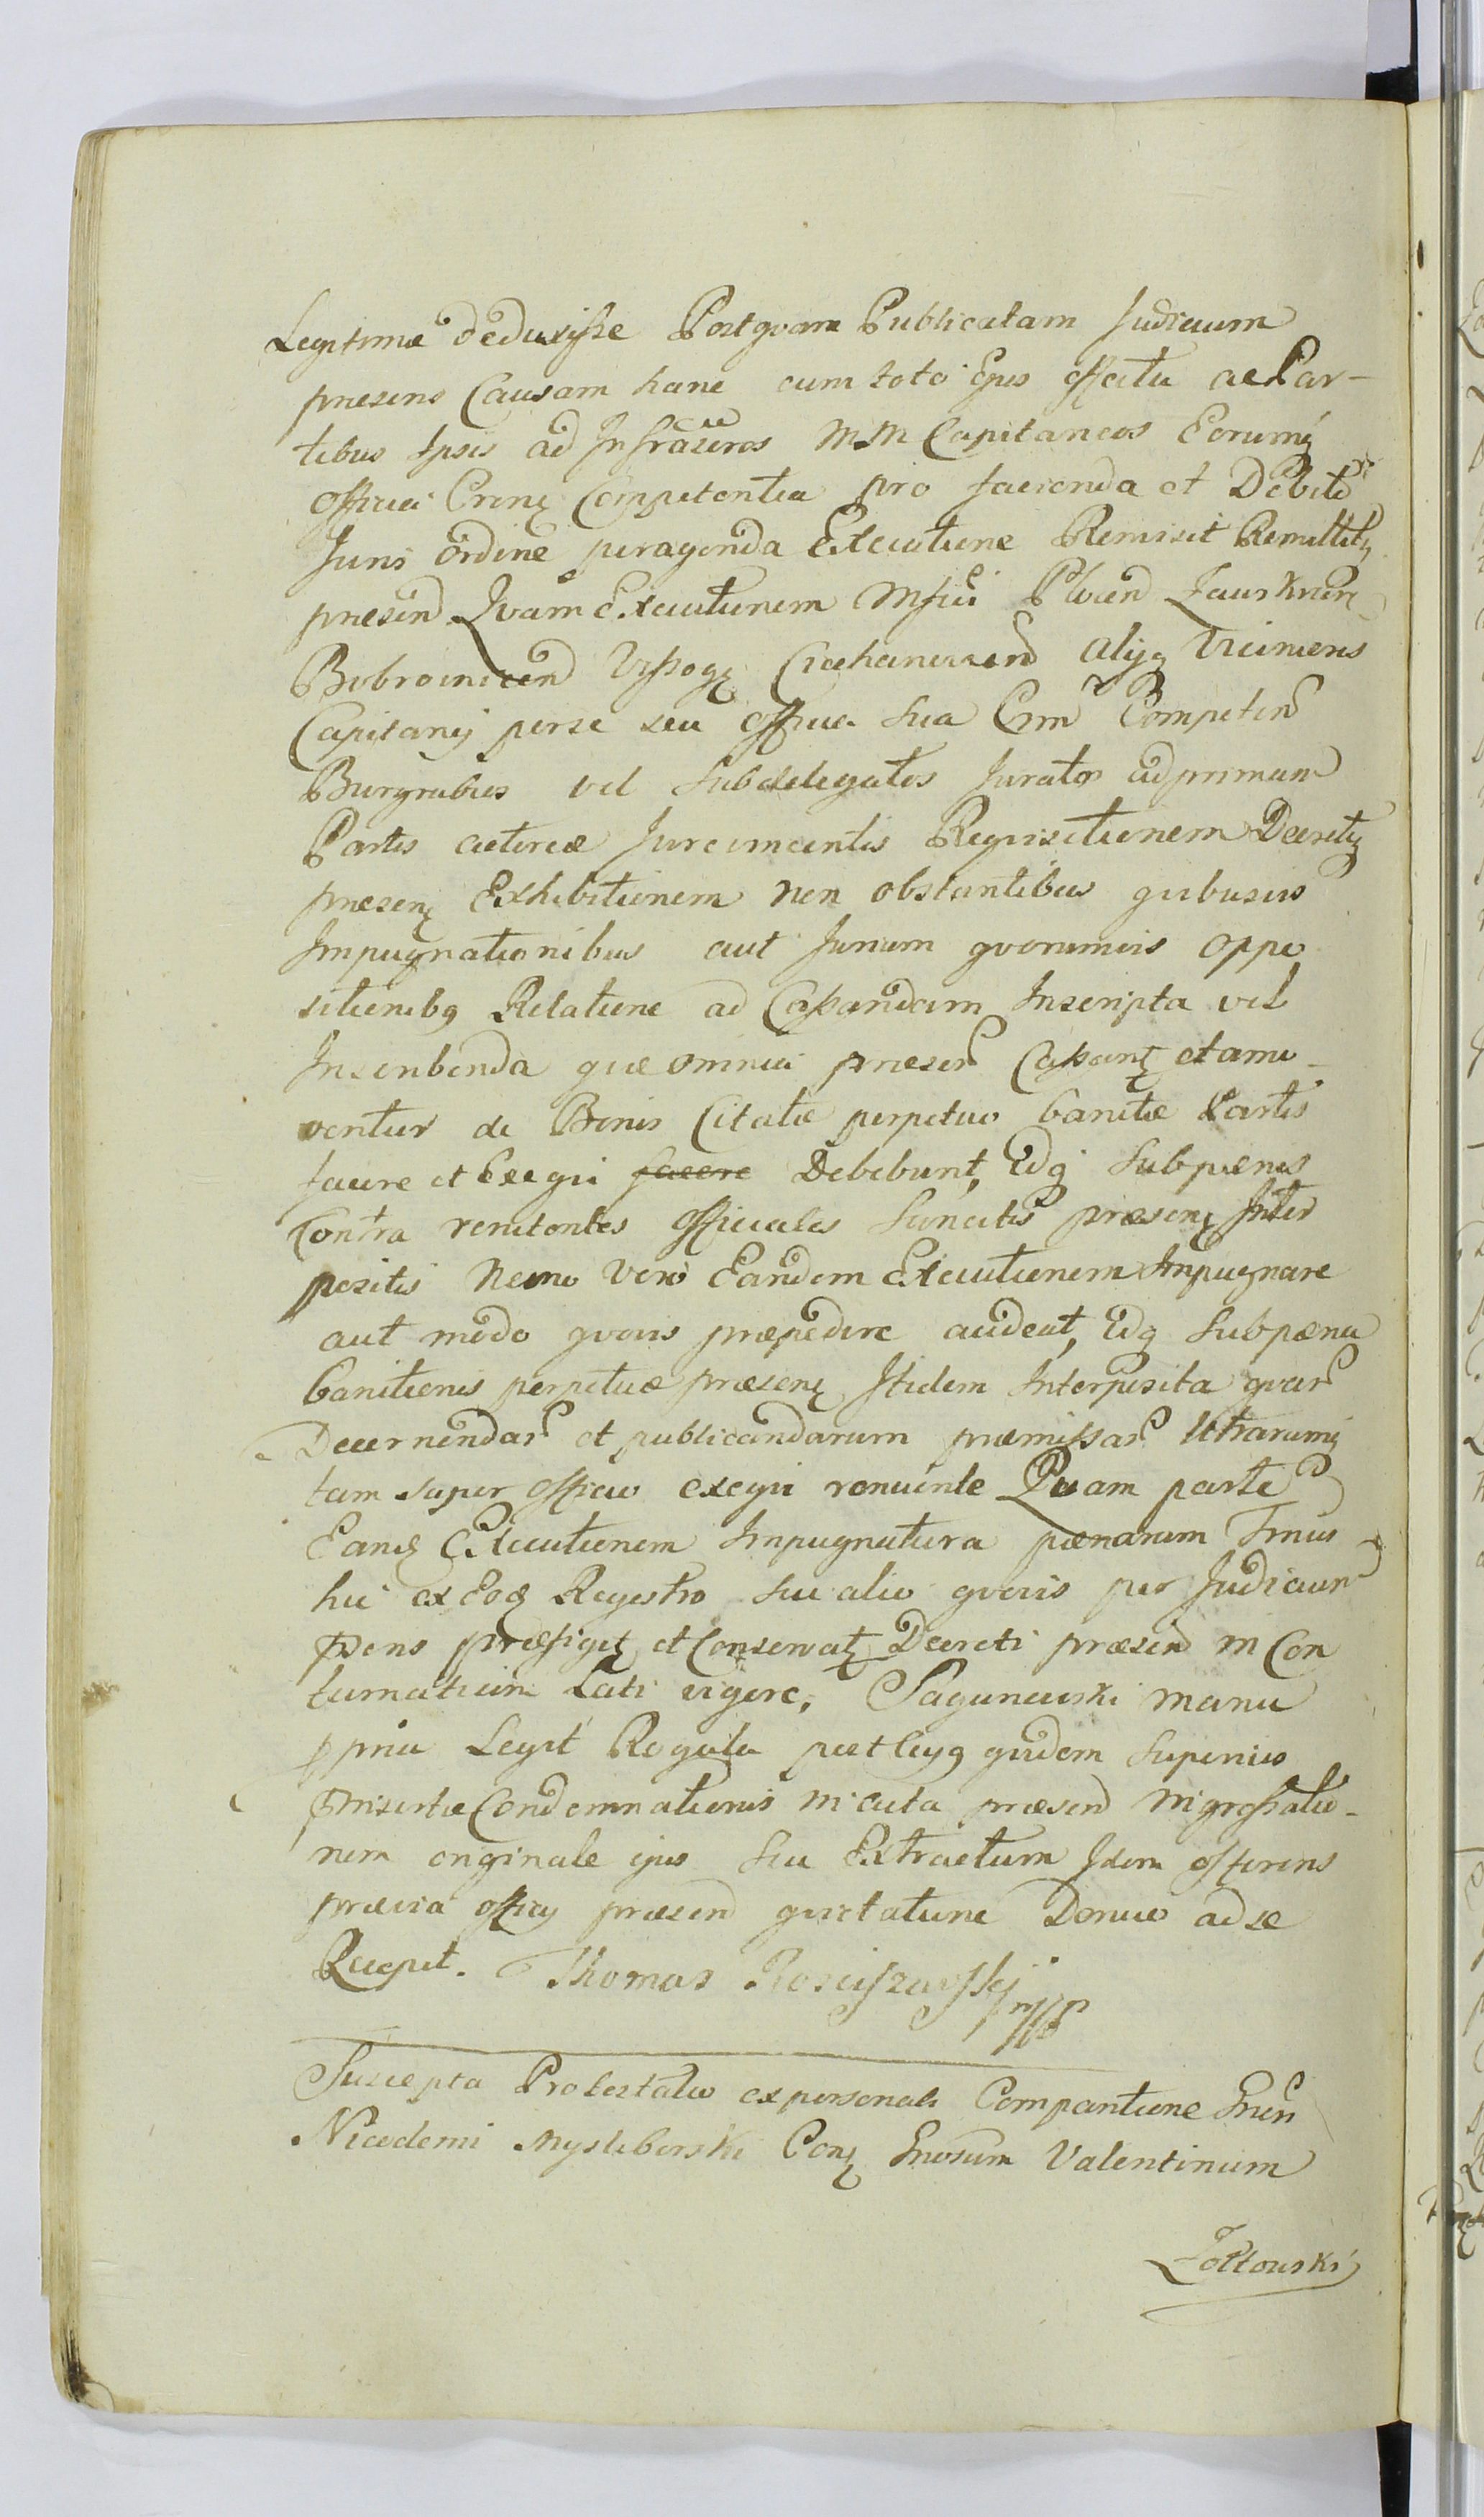 Legitime deduxisse Postqvam Publicatam Judicium
praesens Causam hanc cum toto Ejus effectu ac Par-
tibus Ipsis ad Infrascros MM Capitaneos Eorumq
Officia Crens Competentia pro facienda et Debito
Juris ordine peragenda Executione Remisit Remittitq
praesend Qvam Executionem Mfici Plocen Zauskrnen
Bobrovnicen Vyssog Ciechanovien Alijq Vicinores
Capitanei per se seu officia sua Crim Competen
Burgrabios vel Subdelegatos Juratos ad primam
Partis actoreae Jurevincentis Reqvisitionem Decretiq
praesens Exhibitionem non obstantibus qvibusvis
Impugnationibus aut Jurium qvorumvis oppo
sitionibq Relatione ad Cassandum Inscripta vel
Inscribenda qvae omnia praesen Cassant et amo-
ventur de Bonis Citatae perpetuo banitae Partis
facere et Exeqvi facere Debebunt, Idq Sub poenis
Contra renitentes Officiales Sancitis praesens Inter
positis Nemo vero Eandem Executionem Impugnare
aut modo qvovis praepedire audeat, Idq Sub poena
banitionis perpetuae praesens Itidem Interposita qvar
Decernendar et publicandarum praemissar Utrarumq
tam super officio exeqvi renuente Qvam parte
Eand Executionem Impugnatura poenarum Trnus
hic ex Eod Regestro seu alio qvovis per Judicium
praesens praefigit et Conservat Decreti praesen in Con
tumatiam Lati vigore, Sagunowski manu
ppria Legit Regula post Cujq qvidem Superius
Insertae Condemnationis in acta praesend Ingrossatio-
nem originale ejus seu Extractum Idem offerens
praevia officij praesend qvietatione Denuo ad se
Recepit. Thomas Rosciszewski mpp
Suscepta Protestatio ex personali Comparitione Gnen
Nicodemi Mysliborski Con Gnosum Valentinum
Zołtowski